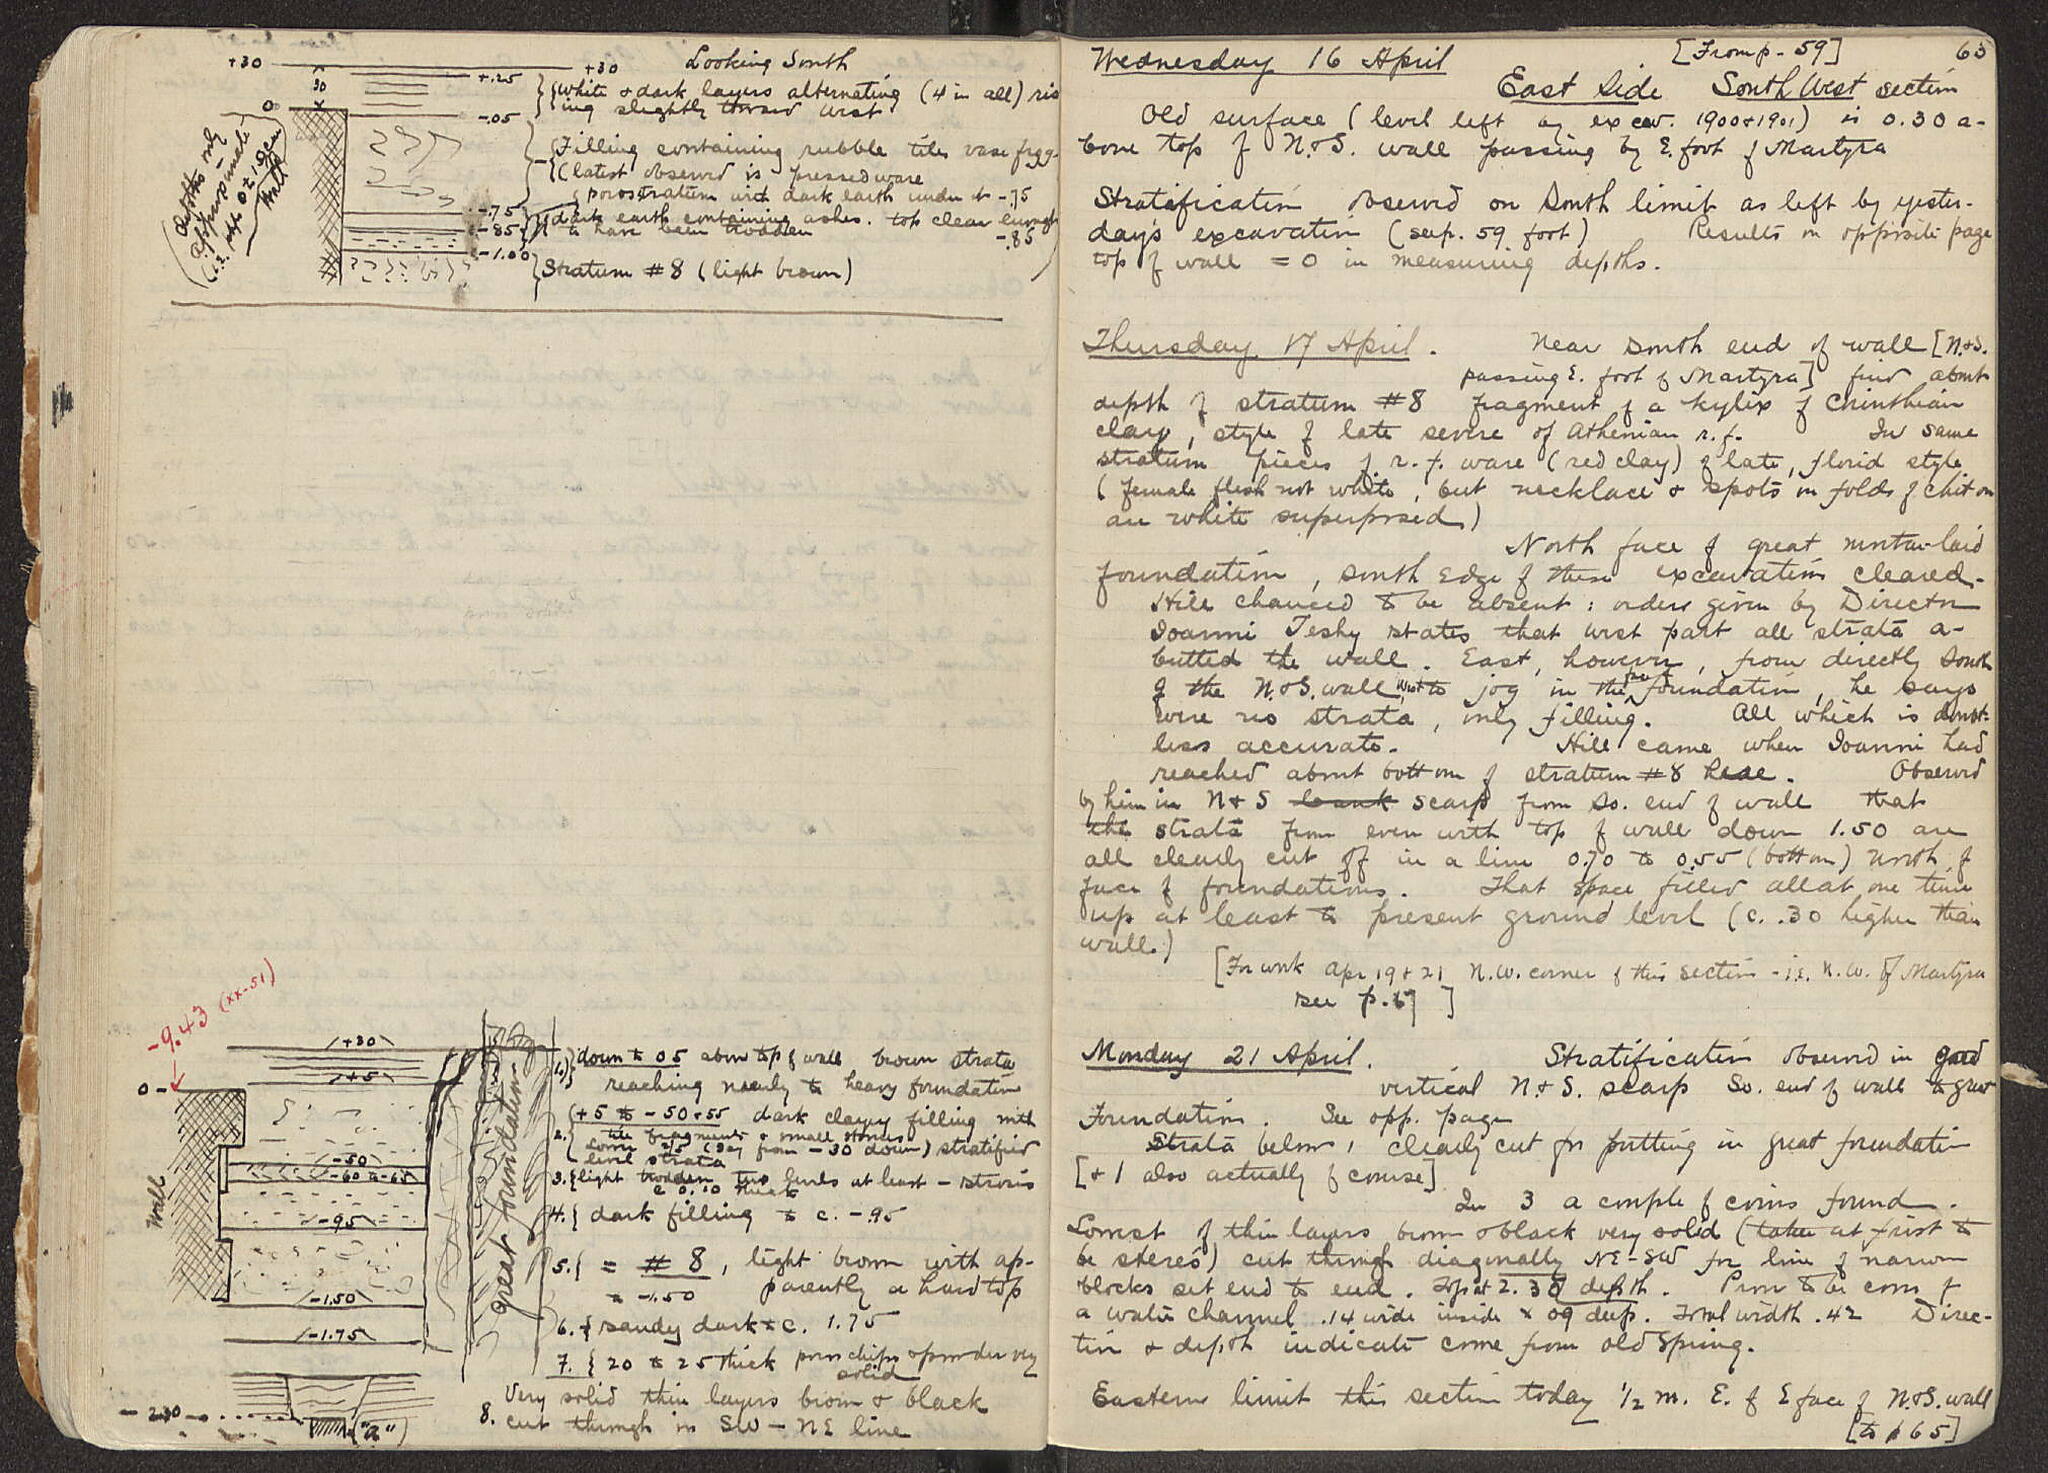 Looking South
+30
+30
+.25
30
0
-.05
-.75
-.85
-1.00
(depths only
approximate
i.e. top 0 ± 10 cm
Wall
white & dark layers alternating (4 in all) ris
ing slightly toward west
Filling containing rubble tiles vase frgg.
(latest observed is pressed ware
poros stratum with dark earth under to -.75
dark earth containing ashes. top clear enough
to have been trodden -.85
Stratum #8 (light brown)
-9.43 (xx-51)
+30
+5
0
-50
-60 a -65
-95
-1.50
-1.75
-230
("a")
Wall
great foundation
1.) down to 05 above top of wall brown strata
reaching nearly to heavy foundation
2. (+5 to -50+55 dark clayey filling with
tile fragments & small stones
(say from -30 down) stratified
level strata
3. light trodden two levels at least - strosis
c 0.10 thick
4. dark filling to c. -.95
5. = #8, light brown with ap-
parently a hard top
a -1.50
6. sandy dark to c. 1.75
7. 20 to 25 thick poros chips & powder very
solid
8. Very solid thin layers brown & black
cut through in SW - NE line
Wednesday 16 April [From p. 59] 63
East Side South West section
Old surface (level left by excav. 1900 & 1901) is 0.30 a-
bove top of N.&S. wall passing by E. foot of Martyra
Stratification observed on South limit as left by yester-
day's excavation (see p. 59 foot) Results on opposite page
top of wall = 0 in measuring depths.
Thursday 17 April. Near south end of wall [N.&S.
passing E. foot of Martyra] find about
depth of stratum #8 fragment of a kylix of Corinthian
clay, style of late severe of Athenian r.f. In same
stratum pieces of r.f. ware (red clay) of late, florid style
(female flesh not white, but necklace & spots on folds of chiton
are white superposed)
North face of great mortar-laid
foundation, south edge of these excavations cleared.
Hill chanced to be absent: orders given by Director
Ioanni Teshy states that west part all strata a-
butted the wall. East, however, from directly South
of the N.&S. wall, West to jog in the face of foundation, he says
were no strata, only filling. All which is doubt-
less accurate. Hill came when Ioanni had
reached about bottom of stratum #8 here. Observed
by him in N & S bank scarp from So. end of wall that
the strata from even with top of wall down 1.50 are
all clearly cut off in a line 0.70 to 0.55 (bottom) north of
face of foundations. That space filled all at one time
up at least to present ground level (c. .30 higher than
wall.)
[For work Apr 19 & 21 N.W. corner of this section - i.e. N.W. of Martyra
see p. 67]
Monday 21 April. Stratification observed in good
vertical N.&S. scarp So. end of wall to great
Foundation. See opp. page
Strata below 1 clearly cut for putting in great foundation
[& 1 also actually of course]
In 3 a couple of coins found.
Lowest of thin layers brown & black very solid (taken at first to
be stereo) cut through diagonally NE-SW for line of narrow
blocks set end to end. Top at 2.30 depth. Prove to be cover of
a water channel .14 wide inside x 09 deep. Total width .42 Direc-
tion & depth indicate come from old Spring.
Eastern limit this section today ½ m. E. of E face of N.&S. wall
[to p 65]